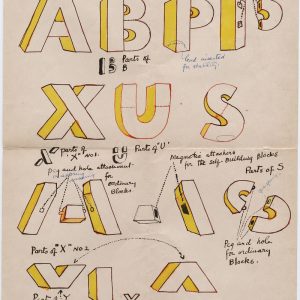 A B P P
Parts of
B
Lead inserted
for stability
X U S
Parts of
"X" No 1.
Parts of 'U'
Peg and hole attachment
for
ordinary
Blocks
Magnetic attachers
for the self-Building Blocks
Parts of S
Peg and hole
for ordinary
Blocks.
Parts of "X" No 2
Part of Y